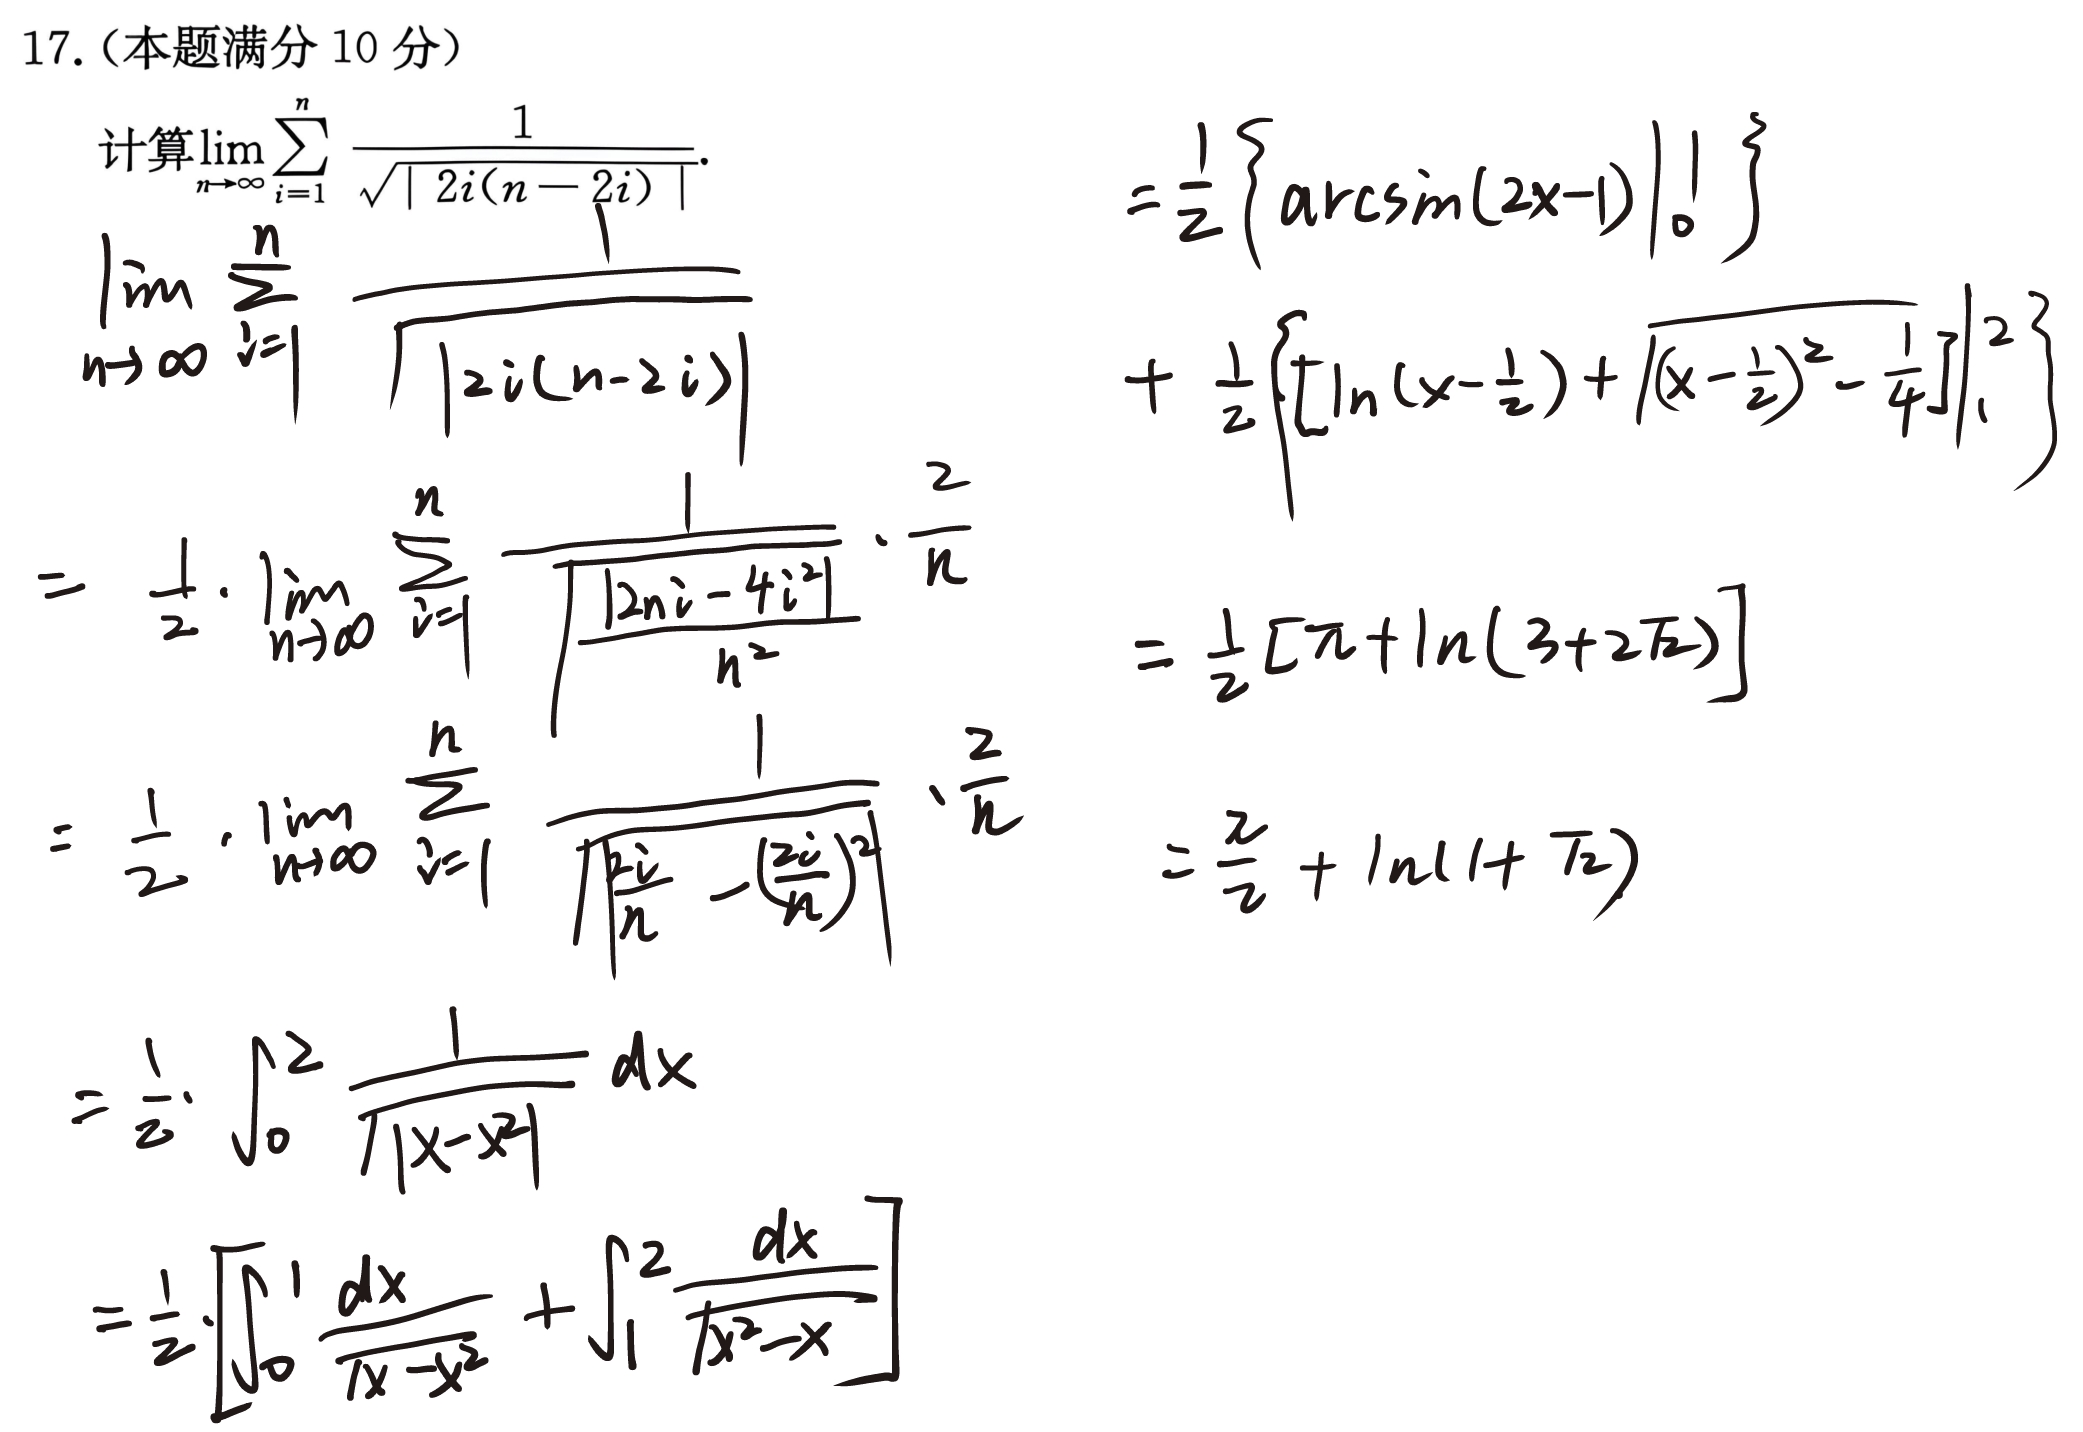 17.（本题满分 10 分）
计算 lim_{n→∞} ∑_{i=1}^{n} 1/√|2i(n－2i)|.
lim_{n→∞} ∑_{i=1}^{n} 1/√|2i(n-2i)|
= 1/2 · lim_{n→∞} ∑_{i=1}^{n} 1/√(|2ni-4i²|/n²) · 2/n
= 1/2 · lim_{n→∞} ∑_{i=1}^{n} 1/√|2i/n - (2i/n)²| · 2/n
= 1/2 · ∫_0^2 1/√|x-x²| dx
= 1/2 · [∫_0^1 dx/√(x-x²) + ∫_1^2 dx/√(x²-x)]
= 1/2 {arcsin(2x-1)|_0^1}
+ 1/2 {[ln(x-1/2) + √((x-1/2)² - 1/4)]|_1^2}
= 1/2 [π+ln(3+2√2)]
= π/2 + ln(1+√2)